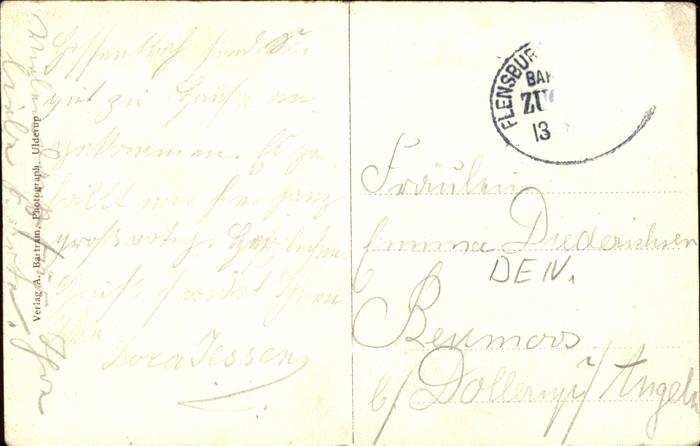 Hoffentlich sind Sie
gut zu Hause an-
gekommen. Es ge-
fällt mir hier ganz
großartig. Herzlichen
Gruß sendet Ihnen
Ihre
Dora Jessen
Verlag A. Bartram, Photograph, Ulderup
FLENSBUR
BAH
ZU
13
Fräulein
Emma Diederichsen
DEN.
b/ Dollerup / Angeln